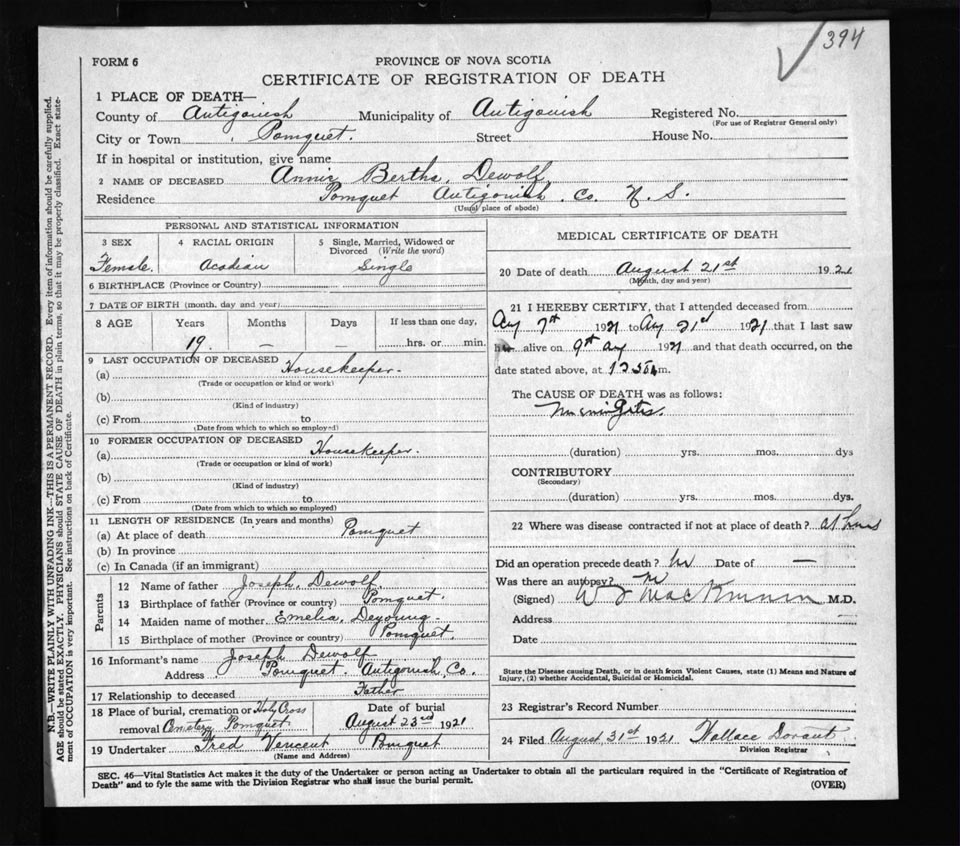 394
FORM 6
PROVINCE OF NOVA SCOTIA
CERTIFICATE OF REGISTRATION OF DEATH
1 PLACE OF DEATH—
County of Antigonish Municipality of Antigonish Registered No.
(For use of Registrar General only)
City or Town Pomquet. Street House No.
If in hospital or institution, give name
2 NAME OF DECEASED Annie Bertha Dewolf
Residence Pomquet Antigonish. Co. N. S.
(Usual place of abode)
PERSONAL AND STATISTICAL INFORMATION
3 SEX 4 RACIAL ORIGIN 5 Single, Married, Widowed or Divorced (Write the word)
Female. Acadian Single
6 BIRTHPLACE (Province or Country)
7 DATE OF BIRTH (month, day and year)
8 AGE Years Months Days If less than one day,
19. — — hrs. or min.
9 LAST OCCUPATION OF DECEASED
(a) Housekeeper.
(Trade or occupation or kind or work)
(b)
(Kind of industry)
(c) From to
(Date from which to which so employed)
10 FORMER OCCUPATION OF DECEASED
(a) Housekeeper.
(Trade or occupation or kind of work)
(b)
(Kind of industry)
(c) From to
(Date from which to which so employed)
11 LENGTH OF RESIDENCE (In years and months)
(a) At place of death Pomquet
(b) In province
(c) In Canada (if an immigrant)
Parents
12 Name of father Joseph Dewolf.
13 Birthplace of father (Province or country) Pomquet.
14 Maiden name of mother Emelia Deyoung.
15 Birthplace of mother (Province or country) Pomquet.
16 Informant's name Joseph Dewolf
Address Pomquet. Antigonish Co.
17 Relationship to deceased Father
18 Place of burial, cremation or removal Holy Cross Cemetery Pomquet
Date of burial
August 23rd 1921
19 Undertaker Fred Vencent Pomquet
(Name and Address)
MEDICAL CERTIFICATE OF DEATH
20 Date of death August 21st 1921
(Month, day and year)
21 I HEREBY CERTIFY, that I attended deceased from
Aug 7th 1921 to Aug 21st 1921 that I last saw
alive on 9th Aug 1921 and that death occurred, on the
date stated above, at m.
The CAUSE OF DEATH was as follows:
Meningitis.
(duration) yrs. mos. dys
CONTRIBUTORY
(Secondary)
(duration) yrs. mos. dys.
22 Where was disease contracted if not at place of death? at home
Did an operation precede death? No Date of —
Was there an autopsy? No
(Signed) W J MacKinnon M.D.
Address
Date
State the Disease causing Death, or in death from Violent Causes, state (1) Means and Nature of
Injury, (2) whether Accidental, Suicidal or Homicidal.
23 Registrar's Record Number
24 Filed August 31st 1921 Wallace Dorant
Division Registrar
SEC. 46—Vital Statistics Act makes it the duty of the Undertaker or person acting as Undertaker to obtain all the particulars required in the "Certificate of Registration of
Death" and to fyle the same with the Division Registrar who shall issue the burial permit.
(OVER)
N.B.—WRITE PLAINLY WITH UNFADING INK—THIS IS A PERMANENT RECORD. Every item of information should be carefully supplied.
AGE should be stated EXACTLY. PHYSICIANS should STATE CAUSE OF DEATH in plain terms, so that it may be properly classified. Exact state-
ment of OCCUPATION is very important. See instructions on back of Certificate.